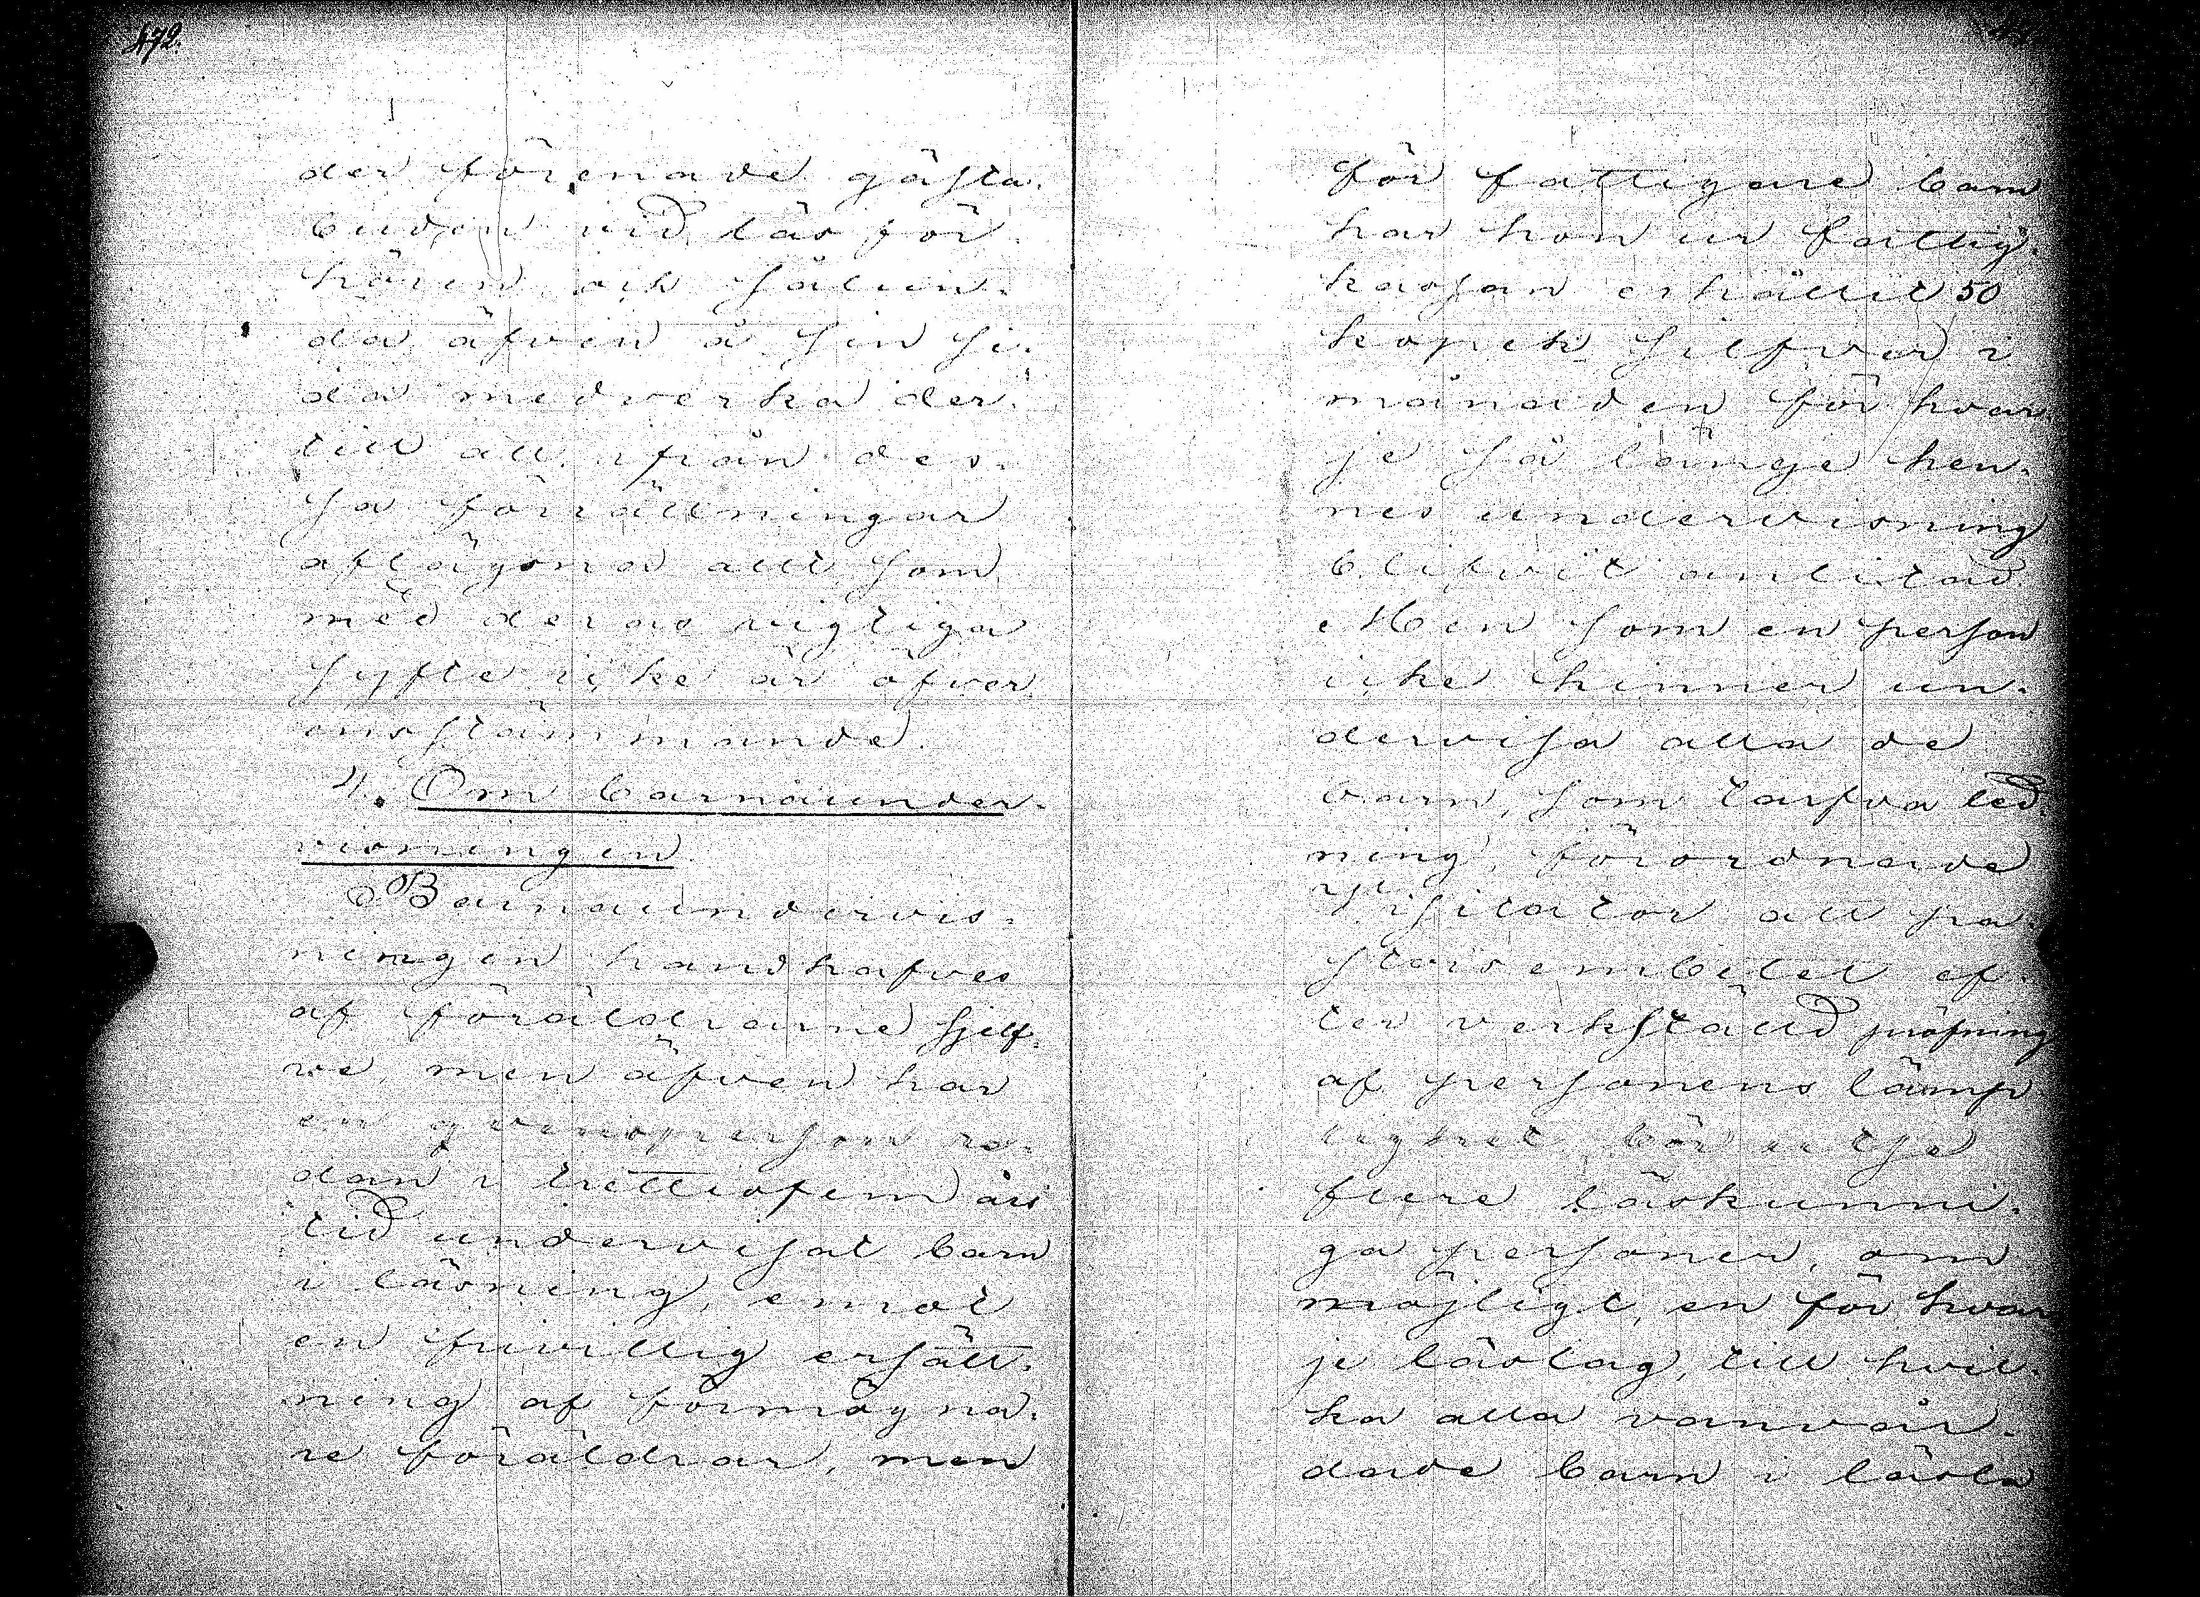 472.
der förenade gästa-
buden vid läsför
hören och sålun-
da äfven å sin si-
da medverka der-
till att ifrån des-
sa förrättningar
aflägsna allt som
med deras rigtiga
syfte icke är öfver
ensstämmande.
4. Om barnaunder-
visningen
Barnaundervis-
ningen handhafves
af föräldrarne sjelf-
ve, men äfven har
en qvinsperson re-
dan i trettiofem års
tid undervisat barn
i läsning, emot
en frivillig ersätt-
ning af förmögna-
re föräldrar, men
för fattigare barn
har hon ur fattig-
kassan erhållit 50
kopek silfver i
månaden för hvar-
je så länge hen-
nes undervisning
blifvit anlitad
Men som en person
icke hinner un-
dervisa alla de
barn, som tarfva led-
ning, förordnade
Visitator att pa-
storsembetet ef-
ter verkställd pröfning
af personens lämp
lighet bör utse
flere läskunni-
ga personer, om
möjligt, en för hvar
je läslag, till hvil-
ka alla vanvår-
dade barn i läsla